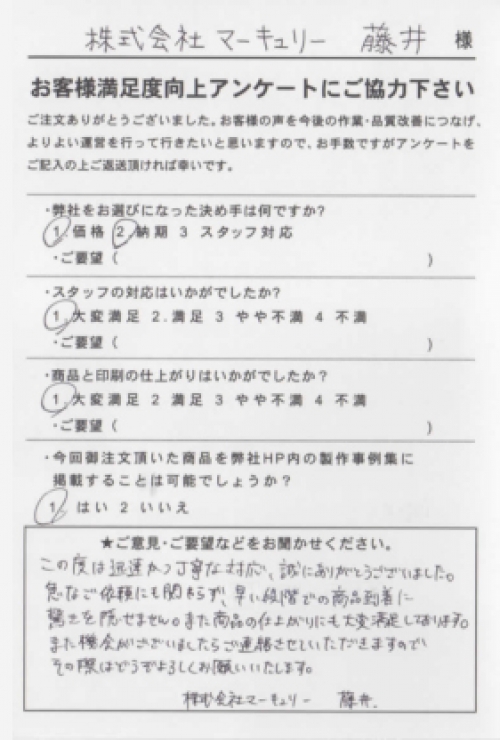 株式会社 マーキュリー 藤井 様
お客様満足度向上アンケートにご協力下さい
ご注文ありがとうございました。お客様の声を今後の作業・品質改善につなげ、
よりよい運営を行って行きたいと思いますので、お手数ですがアンケートを
ご記入の上ご返送頂ければ幸いです。
・弊社をお選びになった決め手は何ですか?
1.価格 2.納期 3 スタッフ対応
・ご要望( )
・スタッフの対応はいかがでしたか?
1.大変満足 2.満足 3 やや不満 4 不満
・ご要望( )
・商品と印刷の仕上がりはいかがでしたか?
1.大変満足 2 満足 3 やや不満 4 不満
・ご要望( )
・今回御注文頂いた商品を弊社HP内の製作事例集に
掲載することは可能でしょうか?
1. はい 2 いいえ
★ご意見・ご要望などをお聞かせください。
この度は迅速かつ丁寧な対応、誠にありがとうございました。
急なご依頼にも関わらず、早い段階での商品到着に
驚きを隠せません。また商品の仕上がりにも大変満足しております。
また機会がございましたらご連絡させていただきますので
その際はどうぞよろしくお願いいたします。
株式会社マーキュリー 藤井.